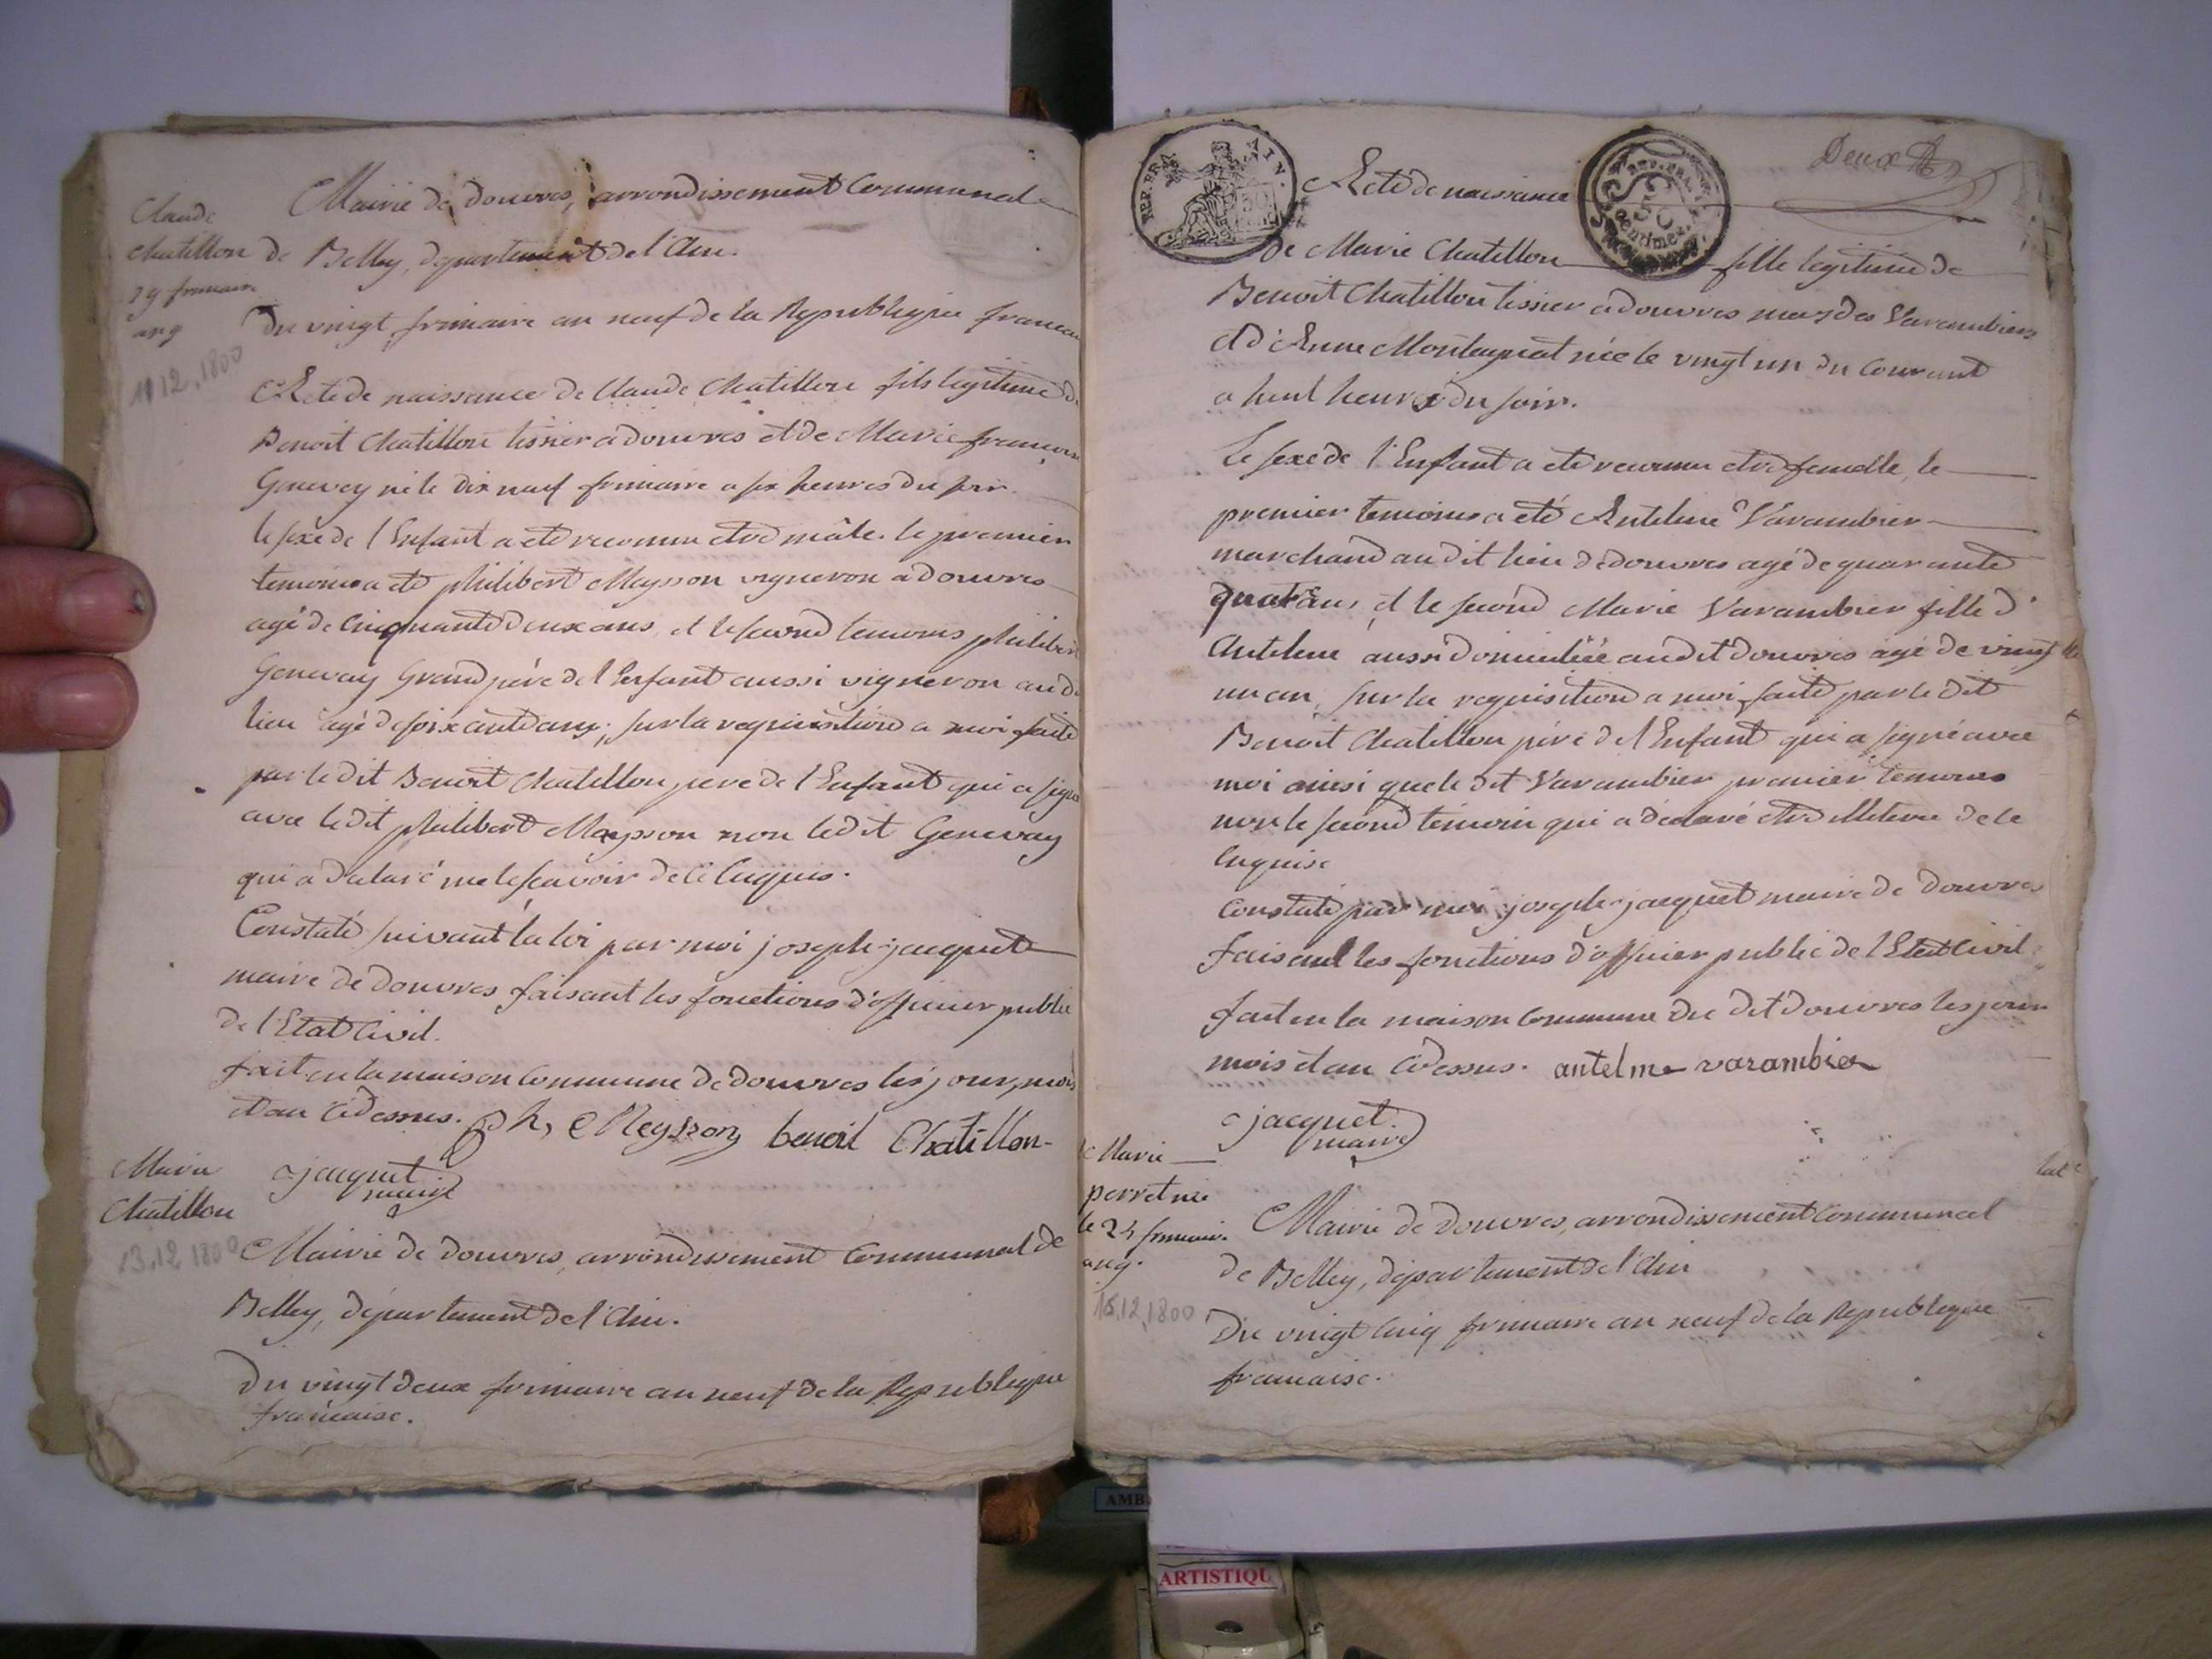 Claude
Chatillon
19 frimaire
an 9
11 12. 1800
Mairie de douvres, arrondissement Communal
de Belley, departement de l'Ain.
Du vingt frimaire an neuf de la Republique francai
Acte de naissance de Claude Chatillon fils legitime de
Benoit Chatillon tissier a douvres et de Marie francoise
Genevey né le dix neuf frimaire a six heures du soir.
le sexe de l'Enfant a eté reconnu etre mâle. le premier
temoins a eté philibert Meysson vigneron a douvres
agé de Cinquante deux ans, et le second temoins philibert
Genevay Grand père de l'Enfant aussi vigneron audit
lieu agé de soixante ans, sur la requisition a moi faite
par le dit Benoit Chatillon, pere de l'Enfant qui a signé
avec ledit philibert Meysson non ledit Genevay
qui a declaré ne le sçavoir de ce Enquis.
Constaté suivant la loi par moi joseph jacquet
maire de douvres faisant les fonctions d'officier public
de l'Etat Civil.
fait en la maison Commune de douvres les jour, mois
et an Cidessus. Ph, Meysson benoit Chatillon
jacquet
maire
Marie
Chatillon
13.12 1800
Mairie de douvres, arrondissement Communal de
Belley, département de l'Ain.
Du vingt deux frimaire an neuf de la Republique
francaise.
REP. FRA.
50
50
Centimes
Deux
Acte de naissance
de Marie Chatillon fille legitime de
Benoit Chatillon tissier a douvres
et d'Anne Montagnat née le vingt un du Courant
a huit heures du soir.
Le sexe de l'Enfant a eté reconnu etre femelle, le
premier temoins a eté Antelme Varambier
marchand au dit lieu de douvres agé de quarante
quatr ans, et le second Marie Varambier fille d'
Antelme aussi domiciliée audit douvres agé de vingt
un an, sur la requisition a moi faite par le dit
Benoit Chatillon père de l'Enfant qui a signé avec
moi ainsi que le dit Varambier premier temoins
non le second témoin qui a déclaré etre illiterée de ce
Enquise
Constaté par moi joseph jacquet maire de douvres
faisant les fonctions d'officier public de l'Etat Civil
fait en la maison Commune du dit douvres les jour
mois et an Cidessus. antelme varambier
jacquet
maire
Marie
perret née
le 24 frimair.
an 9.
15.12.1800
Mairie de douvres, arrondissement Communal
de Belley, département de l'Ain
Du vingt Cinq frimaire an neuf de la Republique
francaise.
AMB
ARTISTIQU